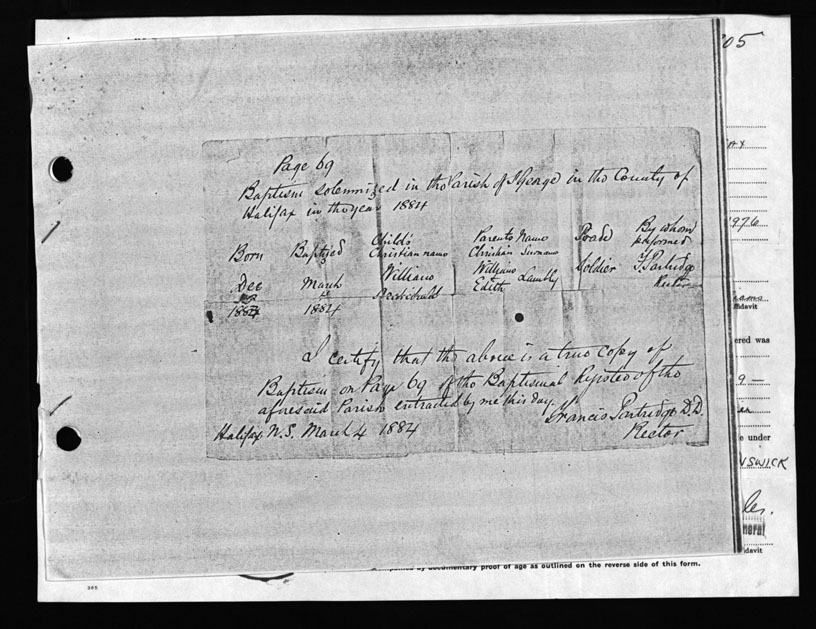 Page 69
Baptism solemnized in the Parish of St George in the County of
Halifax in the year 1884
Born Baptized Child's Christian name Parents Name Christian Surname Trade By whom performed
Dec 1884 March 1884 William Archibald William Edith Lambly Soldier F Partridge Rector
I certify that the above is a true copy of
Baptism on Page 69 of the Baptismal Register of the
aforesaid Parish extracted by me this day.
Francis Partridge D.D.
Halifax N.S. March 4 1884
Rector
05
976
davit
ered was
9 —
e under
NSWICK
neral
davit
by documentary proof of age as outlined on the reverse side of this form.